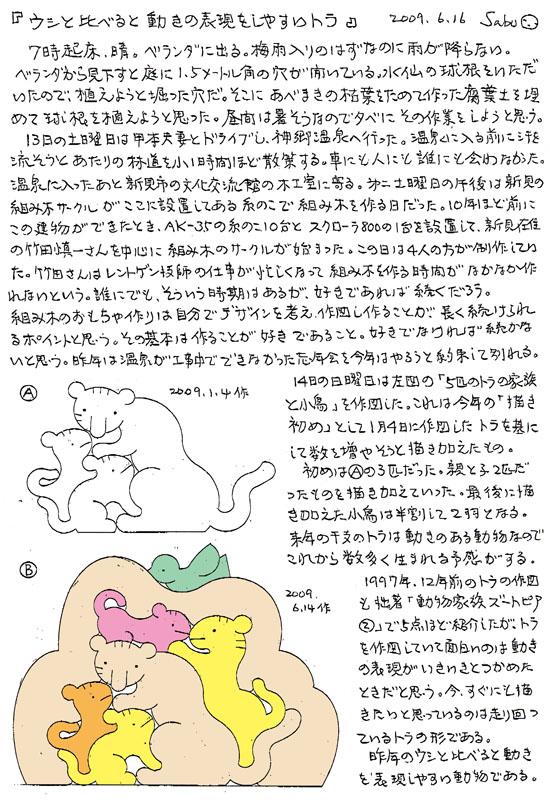 『ウシと比べると動きの表現をしやすいトラ』 2009.6.16 Sabu
7時起床、晴。ベランダに出る。梅雨入りのはずなのに雨が降らない。
ベランダから見下すと庭に1.5メートル角の穴が開いている。水仙の球根をいただい
たので、植えようと掘った穴だ。そこにあべまきの枯葉をためて作った腐葉土を埋
めて球根を植えようと思った。昼間は暑そうなので夕べにその作業をしようと思う。
13日の土曜日は甲本夫妻とドライブし、神郷温泉へ行った。温泉に入る前に汗を
流そうとあたりの林道を小1時間ほど散策する。車にも人にも誰にも会わなかった。
温泉に入ったあと新見市の文化交流館の木工室に寄る。第二土曜日の午後は新見の
組み木サークルがここに設置してある糸のこで組み木を作る日だった。10年ほど前に
この建物ができたとき、AK-35の糸のこ10台とスクローラ800の1台を設置して、新見在住
の竹田慎一さんを中心に組み木のサークルが始まった。この日は4人の方が制作してい
た。竹田さんはレントゲン技師の仕事が忙しくなって組み木を作る時間がなかなか作
れないという。誰にでも、そういう時期はあるが、好きであれば続くだろう。
組み木のおもちゃ作りは自分でデザインを考え、作図し作ることが長く続けられ
るポイントと思う。その基本は作ることが好きであること。好きでなければ続かな
いと思う。昨年は温泉が工事中でできなかった忘年会を今年はやろうと約束して別れる。
Ⓐ
2009.1.4作
14日の日曜日は左図の「5匹のトラの家族
と小鳥」を作図した。これは今年の「描き
初め」として1月4日に作図したトラを基に
して数を増やそうと描き加えたもの。
初めはⒶの3匹だった。親と子2匹だ
ったものを描き加えていった。最後に描
き加えた小鳥は半割して2羽となる。
来年の干支のトラは動きのある動物なので
これから数多く生まれる予感がする。
Ⓑ
2009.
6.14作
1997年、12年前のトラの作図
も拙著「動物家族ズートピア
②」で5点ほど紹介したが、トラ
を作図していて面白いのは動き
の表現がいきいきとつかめた
ときだと思う。今、すぐにも描
きたいと思っているのは走り回っ
ているトラの形である。
昨年のウシと比べると動き
を表現しやすい動物である。